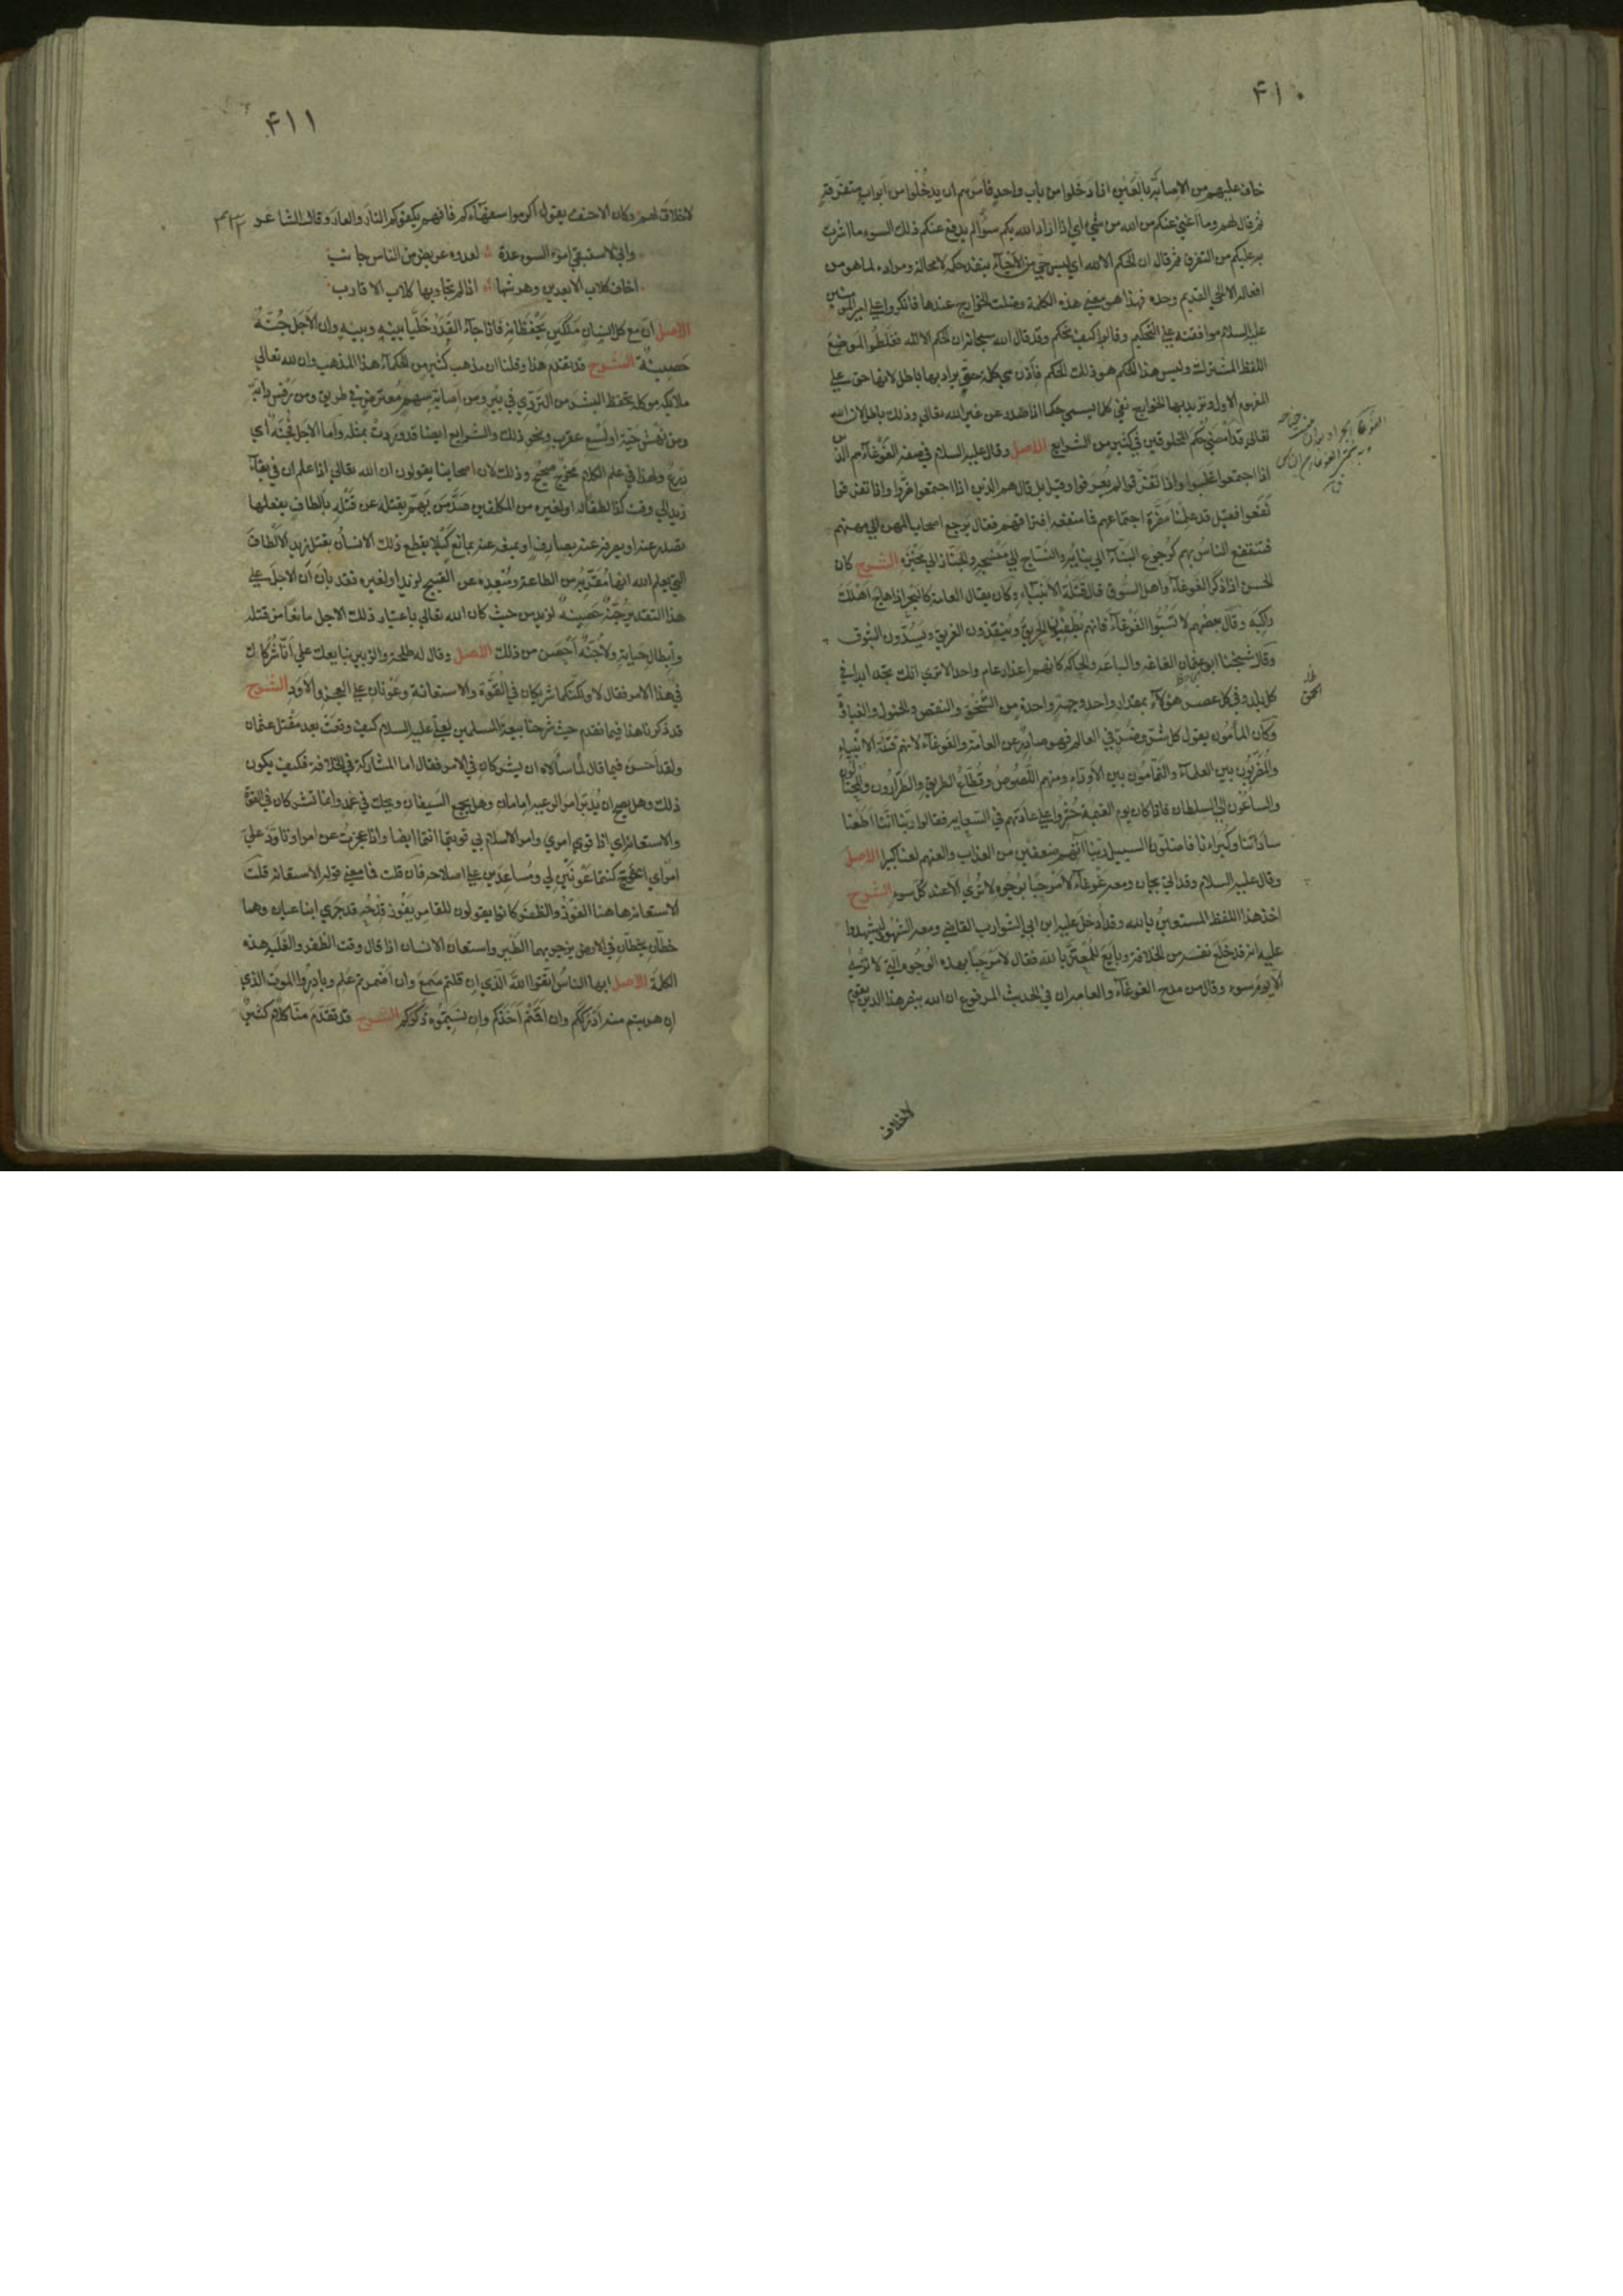 ۴۱۰
خاف عليهم من الاصابة بالعين اذا دخلوا من باب واحد فامرهم ان يدخلوا من ابواب متفرقة
ثم قال لهم وما اغني عنكم من الله من شئ اي اذا اراد الله بكم سوءًا لم يدفع عنكم ذلك السوء ما اشرت
به عليكم من التفرق ثم قال ان الحكم الا لله اي ليس حي من الاحياء ينفذ حكمه لا محالة ومراده لما هو من
افعاله الا الحي القديم وحده فهذا هو معنى هذه الكلمة وضلت الخوارج عندها فانكروا على امير المومنين
عليه السلام موافقته على التحكيم وقالوا كيف يحكم وقد قال الله سبحانه ان الحكم الا لله فغلطوا لموضع
اللفظ المشترك وليس هذا الحكم هو ذلك الحكم فاذن هي كلمة حق يراد بها باطل لانها حق على
المفهوم الاول وتريد بها الخوارج نفي كل ما يسمى حكما اذا صدر عن غير الله تعالى وذلك باطل لان الله
تعالى قد امضى حكم المخلوقين في كثير من الشرايع الاصل وقال عليه السلام في صفة الغوغاء هم الذين
اذا اجتمعوا غلبوا واذا تفرقوا لم يعرفوا وقيل بل قال هم الذين اذا اجتمعوا ضروا واذا تفرقوا
نفعوا فقيل قد علمنا مضرة اجتماعهم فما منفعة افتراقهم فقال يرجع اصحاب المهن الى مهنهم
فينتفع الناس بهم كرجوع البناء الى بنائه والنساج الى منسجه والخباز الى مخبزه الشرح كان
الحسن اذا ذكر الغوغاء واهل السوق قال قتلة الانبياء وكان يقال العامة كالبحر اذا هاج اهلك
راكبه وقال بعضهم لا تسبوا الغوغاء فانهم يطفئون الحريق وينقذون الغريق ويسدون البثوق
وقال شيخنا ابو عثمان الغاغة والباعة والحاكة كانهم اعذار عام واحد الا ترى انك تجد ابدا في
كل بلد وفي كل عصر هؤلاء بمقدار واحد وجهة واحدة من السخف والنقص والخمول والغباوة
وكان المأمون يقول كل شر وضر في العالم فهو صادر عن العامة والغوغاء لانهم قتلة الانبياء
والمضربون بين العلماء والنمامون بين الاوداء ومنهم اللصوص وقطاع الطريق والطرارون والمحتالون
والساعون الى السلطان فاذا كان يوم القيمة حشروا على عادتهم في السعاية فقالوا ربنا انا اطعنا
ساداتنا وكبراءنا فاضلونا السبيل ربنا آتهم ضعفين من العذاب والعنهم لعنا كبيرا الاصل
وقال عليه السلام وقد اتي بجان ومعه غوغاء لا مرحبا بوجوه لا ترى الا عند كل سوءة الشرح
اخذ هذا اللفظ المستعين بالله وقد ادخل عليه ابن ابي الشوارب القاضي ومعه الشهود ليشهدوا
عليه انه قد خلع نفسه من الخلافة وبايع للمعتز بالله فقال لا مرحبا بهذه الوجوه التي لا ترى
الا يوم سوء وقال من مدح الغوغاء والعامة ان في الحديث المرفوع ان الله ينصر هذا الدين بقوم
لاخلاق
۴۱۱
لا خلاق لهم وكان الاحنف يقول اكرموا سفهاءكم فانهم يكفونكم النار والعار وقال الشاعر
واني لاستبقي امرء السوء عدة لعدوة عريض من الناس جانب
اخاف كلاب الابعدين وهرشها اذا لم تجاوبها كلاب الاقارب
الاصل ان مع كل انسان ملكين يحفظانه فاذا جاء القدر خليا بينه وبينه وان الاجل جنة
حصينة الشرح قد تقدم هذا وقلنا ان مذهب كثير من الحكماء هذا المذهب وان لله تعالى
ملائكة موكلة تحفظ البشر من التردي في بئر ومن اصابة سهم معترض في طريق ومن رفس دابة
ومن نهش حية او لسع عقرب ونحو ذلك والشرايع ايضا قد وردت بمثله واما الاجل جنة اي
درع ولهذا في علم الكلام مخرج صحيح وذلك لان اصحابنا يقولون ان الله تعالى اذا علم ان في بقاء
زيد الى وقت كذا لطفا له او لغيره من المكلفين صد من يهم بقتله عن قتله بالطاف يفعلها
تصده عنه او يصرفه عنه بصارف او يمنعه عنه بمانع كيلا يقطع ذلك الانسان بقتل زيد الالطاف
التي يعلم الله انها مقربة من الطاعة ومبعدة عن القبيح لزيد او لغيره فقد بان ان الاجل على
هذا التقدير جنة حصينة لزيد من حيث كان الله تعالى باعتبار ذلك الاجل مانعا من قتله
وابطال حياته ولا جنة احصن من ذلك الاصل وقال له طلحة والزبير نبايعك على انا شركاؤك
في هذا الامر فقال لا ولكنكما شريكان في القوة والاستعانة وعونان على العجز والاود الشرح
قد ذكرنا هذا فيما تقدم حيث شرحنا بيعة المسلمين لعلي عليه السلام كيف وقعت بعد مقتل عثمان
ولقد احسن فيما قال لما سألاه ان يشركاه في الامر فقال اما المشاركة في الخلافة فكيف يكون
ذلك وهل يصح ان يدبر امر الرعية امامان وهل يجمع السيفان ويحك في غمد وانما تشركان في القوة
والاستعانة اي اذا قوي امري وامر الاسلام بي قويتما انتما ايضا واذا عجزت عن امر او تأود علي
امر اي اعوج كنتما عونين لي ومساعدين على اصلاحه فان قلت فما معنى قوله الاستعانة قلت
الاستعانة هاهنا الفوز والظفر كانوا يقولون للقامر يفوز قدحه قد جرى ابنا عنان وهما
خطان يخطان في الارض يزجر بهما الطير واستعان الانسان اذا قال وقت الظفر والغلبة هذه
الكلمة الاصل ايها الناس اتقوا الله الذي ان قلتم سمع وان اضمرتم علم وبادروا الموت الذي
ان هربتم منه ادرككم وان اقمتم اخذكم وان نسيتموه ذكركم الشرح قد تقدم منا كلام كثير